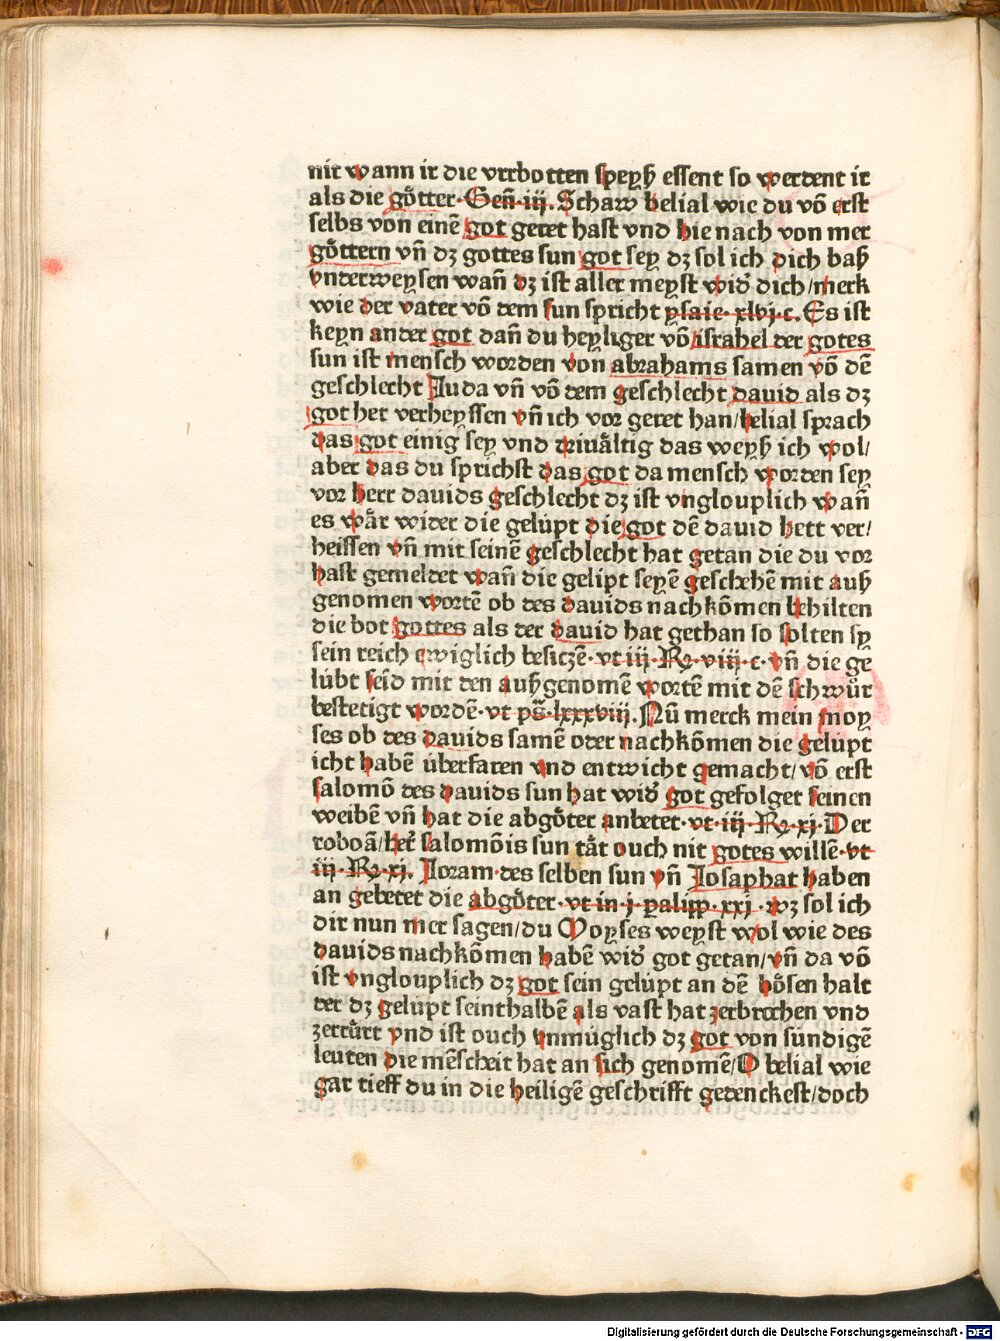 nit wann ir die vrrbotten speyß essent so werdent ir
als die gőtter· Geñ·iij. Schaw belial wie du võ erst
selbs von einẽ got geret hast vnd hie nach von mer
gőttern vñ dz gottes sun got sey dz sol ich dich baß
vnderweysen wañ dz ist aller meyst wid' dich/merk
wie der vater võ dem sun spricht ysaie· xlvj·c. Es ist
keyn ander got dañ du heyliger võ israhel der gotes
sun ist mensch worden von abrahams samen võ dẽ
geschlecht Juda vñ võ dem geschlecht dauid als dz
got het verheyssen vñ ich vor geret han/belial sprach
das got einig sey vnd driuåltig das weyß ich wol/
aber das du sprichst das got da mensch worden sey
vor herr dauids geschlecht dz ist vnglouplich wañ
es wår wider die gelüpt die got dẽ dauid hett ver/
heissen vñ mit seinẽ geschlecht hat getan die du vor
hast gemeldet wañ die gelipt seyẽ geschehẽ mit auß
genomen wortẽ ob des dauids nachkõmen behilten
die bot gottes als der dauid hat gethan so solten sy
sein reich ewiglich besiczẽ· vt iij· Rꝫ· viij·c· vñ die ge
lübt seĩd mit den außgenomẽ wortẽ mit dẽ schwůr
bestetigt wordẽ· vt ps̃· lxxxviij. Nũ merck mein moy
ses ob des dauids samẽ oder nachkõmen die gelüpt
icht habẽ überfaren vnd entwicht gemacht/võ erst
salomõ des dauids sun hat wid' got gefolget seinen
weibẽ vñ hat die abgőter anbetet· vt iij· Rꝫ· xj· Der
roboã/her' salomõis sun tåt ouch nit gotes willẽ· vt
iij· Rꝫ· xj. Joram·des selben sun vñ Josaphat haben
an gebetet die abgőter· vt in·j·palipp· xxj· wz sol ich
dir nun mer sagen/du Moyses weyst wol wie des
dauids nachkõmen habẽ wid' got getan/vñ da võ
ist vnglouplich dz got sein gelüpt an dẽ bősen halt
der dz gelüpt seinthalbẽ als vast hat zerbrochen vnd
zerrürt vnd ist ouch vnmüglich dz got von sündigẽ
leuten die mẽscheit hat an sich genomẽ/O belial wie
gar tieff du in die heiligẽ geschrifft gedenckest/doch
Digitalisierung gefördert durch die Deutsche Forschungsgemeinschaft - DFG